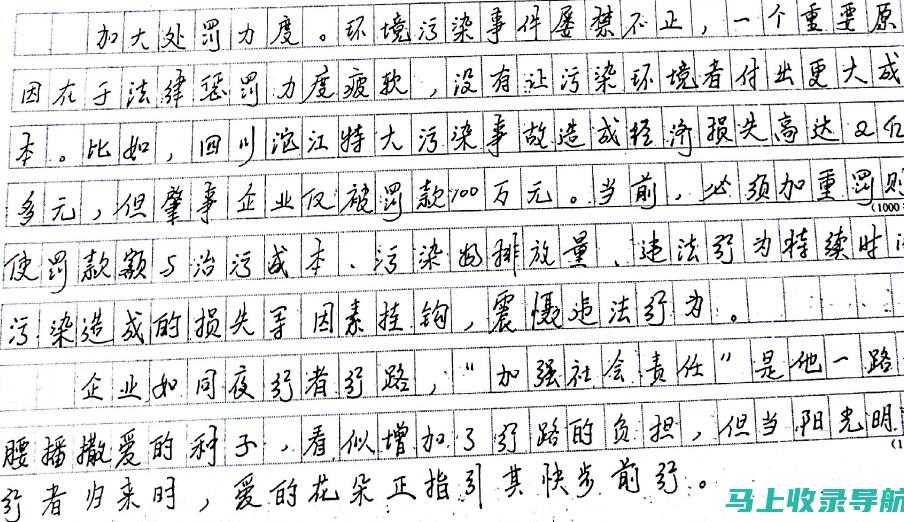 加大处罚力度。环境污染事件屡禁不止，一个重要原
因在于法律惩罚力度疲软，没有让污染环境者付出更大成
本。比如，四川沱江特大污染事故造成经济损失高达2亿
多元，但肇事企业仅被罚款100万元。当前，必须加重罚则
(1000
使罚款额与治污成本、污染物排放量、违法行为持续时
污染造成的损失等因素挂钩，震慑违法行为。
企业如同夜行者行路，“加强社会责任”是他一路
腰播撒爱的种子，看似增加了行路的负担，但当阳光明
行者归来时，爱的花朵正指引其快步前行。
马上收录导航